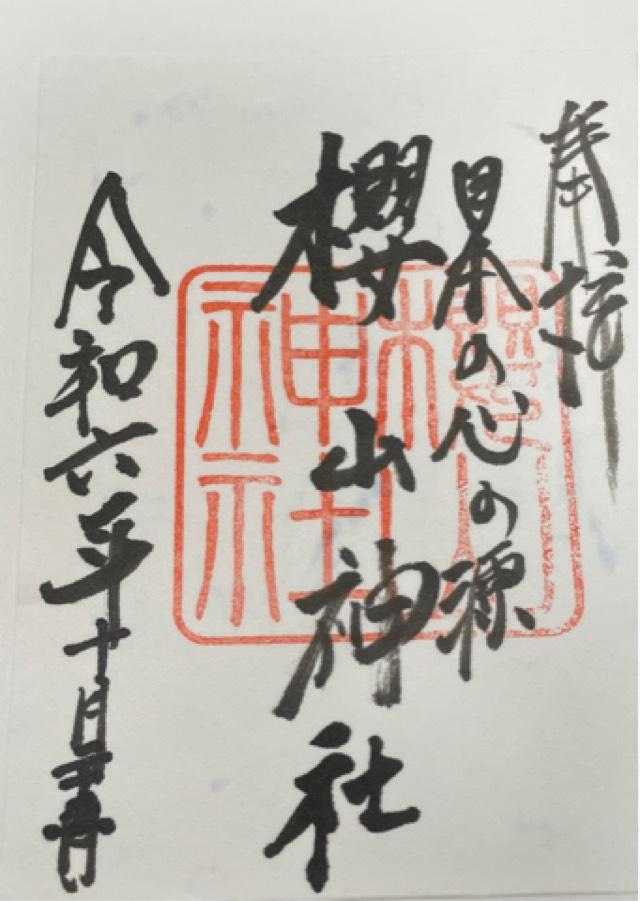 奉拝
日本の心の源
櫻山神社
令和六年十月
櫻山
神社